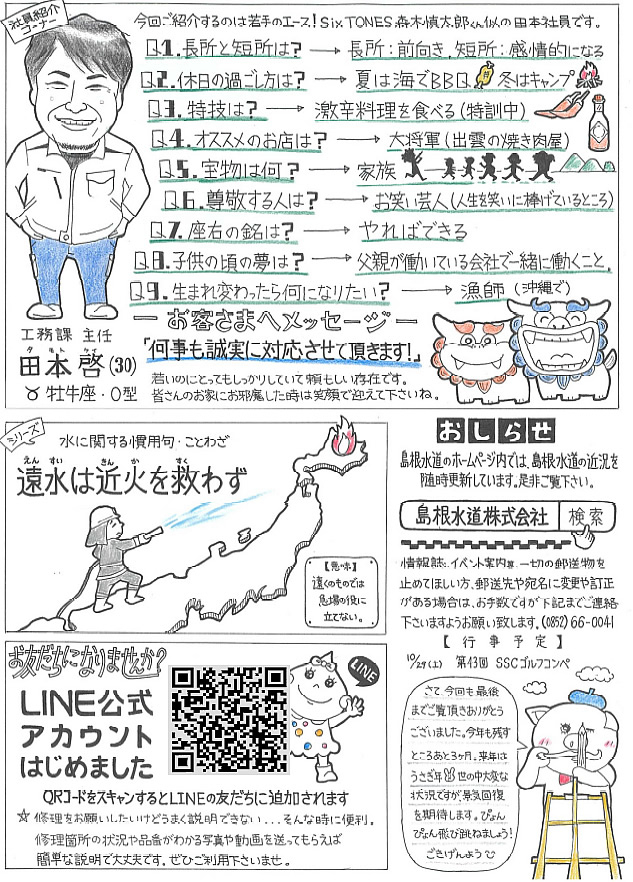 社員紹介
コーナー
今回ご紹介するのは若手のエース!SixTONES、森本慎太郎くん似の田本社員です。
Q1.長所と短所は? → 長所:前向き、短所:感情的になる
Q2.休日の過ごし方は? → 夏は海でBBQ 冬はキャンプ
Q3.特技は? → 激辛料理を食べる(特訓中)
Q4.オススメのお店は? → 大将軍(出雲の焼き肉屋)
Q5.宝物は何? → 家族
Q6.尊敬する人は? → お笑い芸人(人生を笑いに捧げているところ)
Q7.座右の銘は? → やればできる
Q8.子供の頃の夢は? → 父親が働いている会社で一緒に働くこと。
Q9.生まれ変わったら何になりたい? → 漁師(沖縄で)
ーお客さまへメッセージー
「何事も誠実に対応させて頂きます!」
工務課 主任
田本 啓(30)
♉牡牛座・O型
若いのにとってもしっかりしていて頼もしい存在です。
皆さんのお家にお邪魔した時は笑顔で迎えて下さいね。
シリーズ
水に関する慣用句・ことわざ
えん すい きん か すく
遠水は近火を救わず
【意味】
遠くのものでは
急場の役に
立てない。
おしらせ
島根水道のホームページ内では、島根水道の近況を
随時更新しています。是非ご覧下さい。
島根水道株式会社 検索
情報誌、イベント案内等、一切の郵送物を
止めてほしい方、郵送先や宛名に変更や訂正
がある場合は、お手数ですが下記までご連絡
下さいますようお願い致します。(0852)66-0041
【行事予定】
10/29(土) 第43回 SSCゴルフコンペ
お友だちになりませんか?
LINE
LINE公式
アカウント
はじめました
QRコードをスキャンするとLINEの友だちに追加されます
☆修理をお願いしたいけどうまく説明できない…そんな時に便利。
修理箇所の状況や品番がわかる写真や動画を送ってもらえば
簡単な説明で大丈夫です。ぜひご利用下さいませ。
さて、今回も最後
までご覧頂きありがとう
ございました。今年も残す
ところあと3ヶ月。来年は
うさぎ年 世の中大変な
状況ですが、景気回復
を期待します。ぴょん
ぴょん飛び跳ねましょう!
ごきげんよう